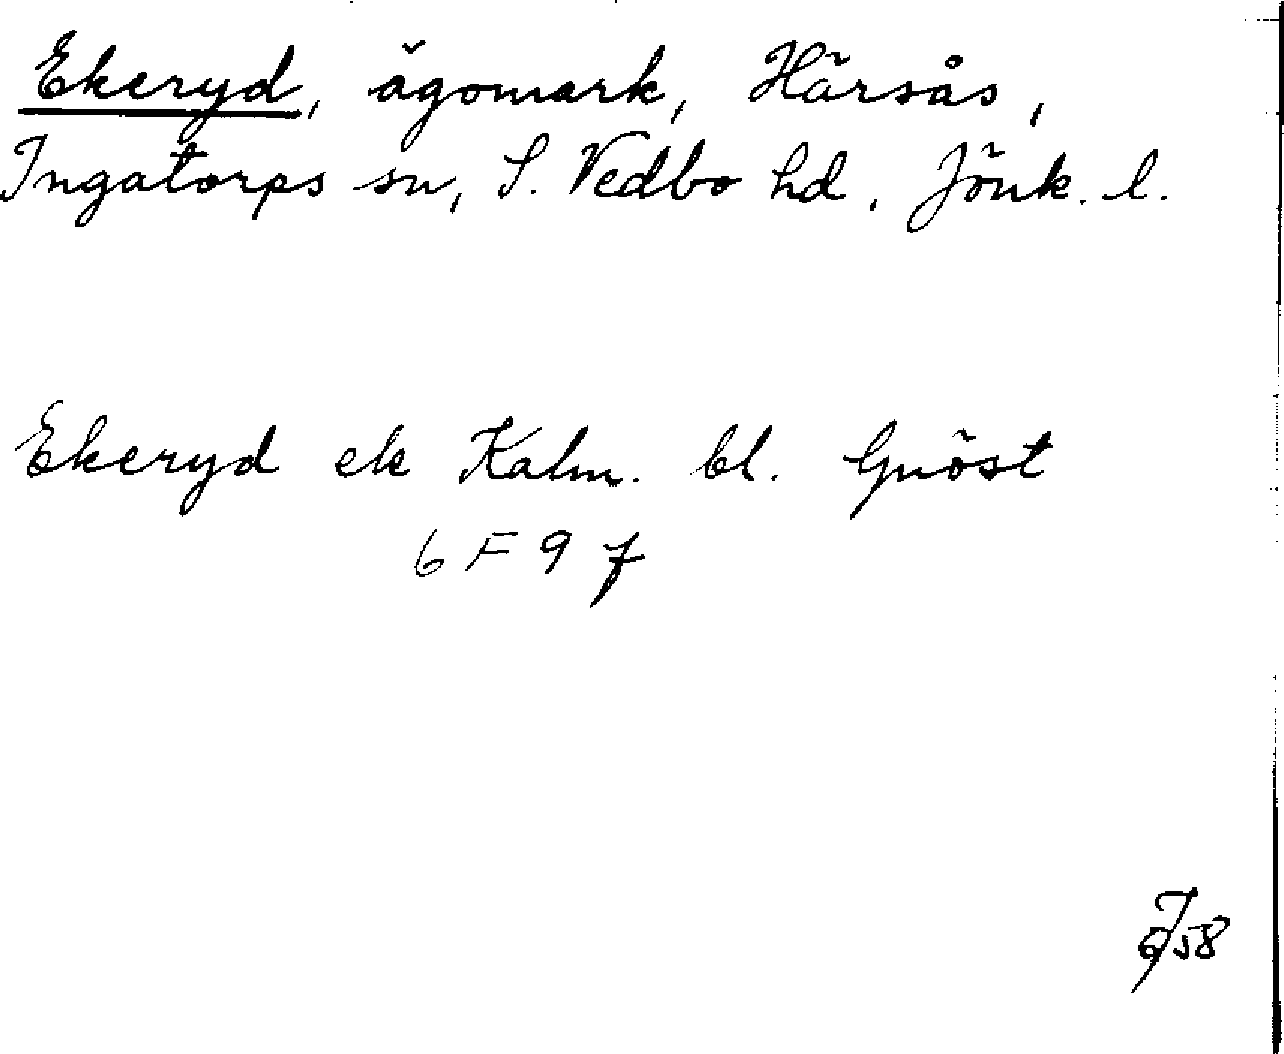 Ekeryd, ägomark, Härsås,
Ingatorps sn, S. Vedbo hd, Jönk. l.
Ekeryd ek Kalm. bl. Gnöst
6 F 9 f